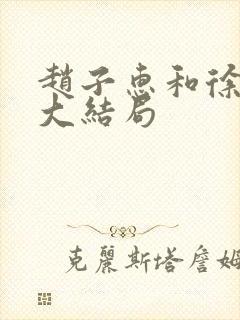 趙子惠和徐
大結局
克麗斯塔詹姆